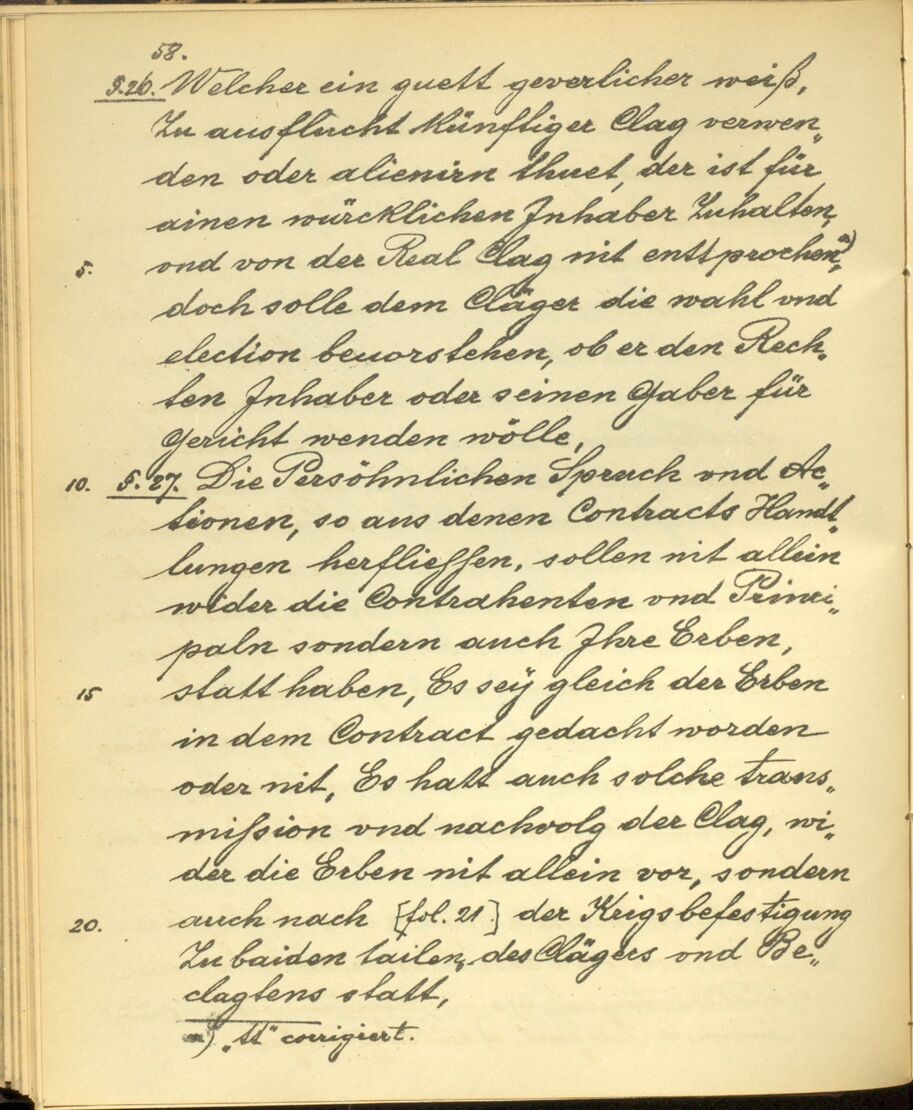 58.
§.26. Welcher ein guett geverlicher weiß,
Zu ausflucht künftiger Clag verwen„
den oder alienirn thuet, der ist für
ainen würcklichen Inhaber Zuhalten,
5. vnd von der Real Clag nit enttprochen a)„
doch solle dem Cläger die wahl vnd
election beuorstehen, ob er den Rech„
ten Inhaber oder seinen Gaber für
Gericht wenden wölle,
10. §. 27. Die Persöhnlichen Spruch vnd Ac„
tionen, so aus denen Contracts Handt„
lungen herfliessen, sollen nit allein
wider die Contrahenten vnd Princi„
paln sondern auch Ihre Erben,
15 statt haben, Es seÿ gleich der Erben
in dem Contract gedacht worden
oder nit, Es hatt auch solche trans„
mission vnd nachvolg der Clag, wi„
der die Erben nit allein vor, sondern
20. auch nach [fol. 21.] der Krigsbefestigung
Zu baiden tailen, des Clägers vnd Be„
clagtens statt,
a) „tt“ corrigiert.